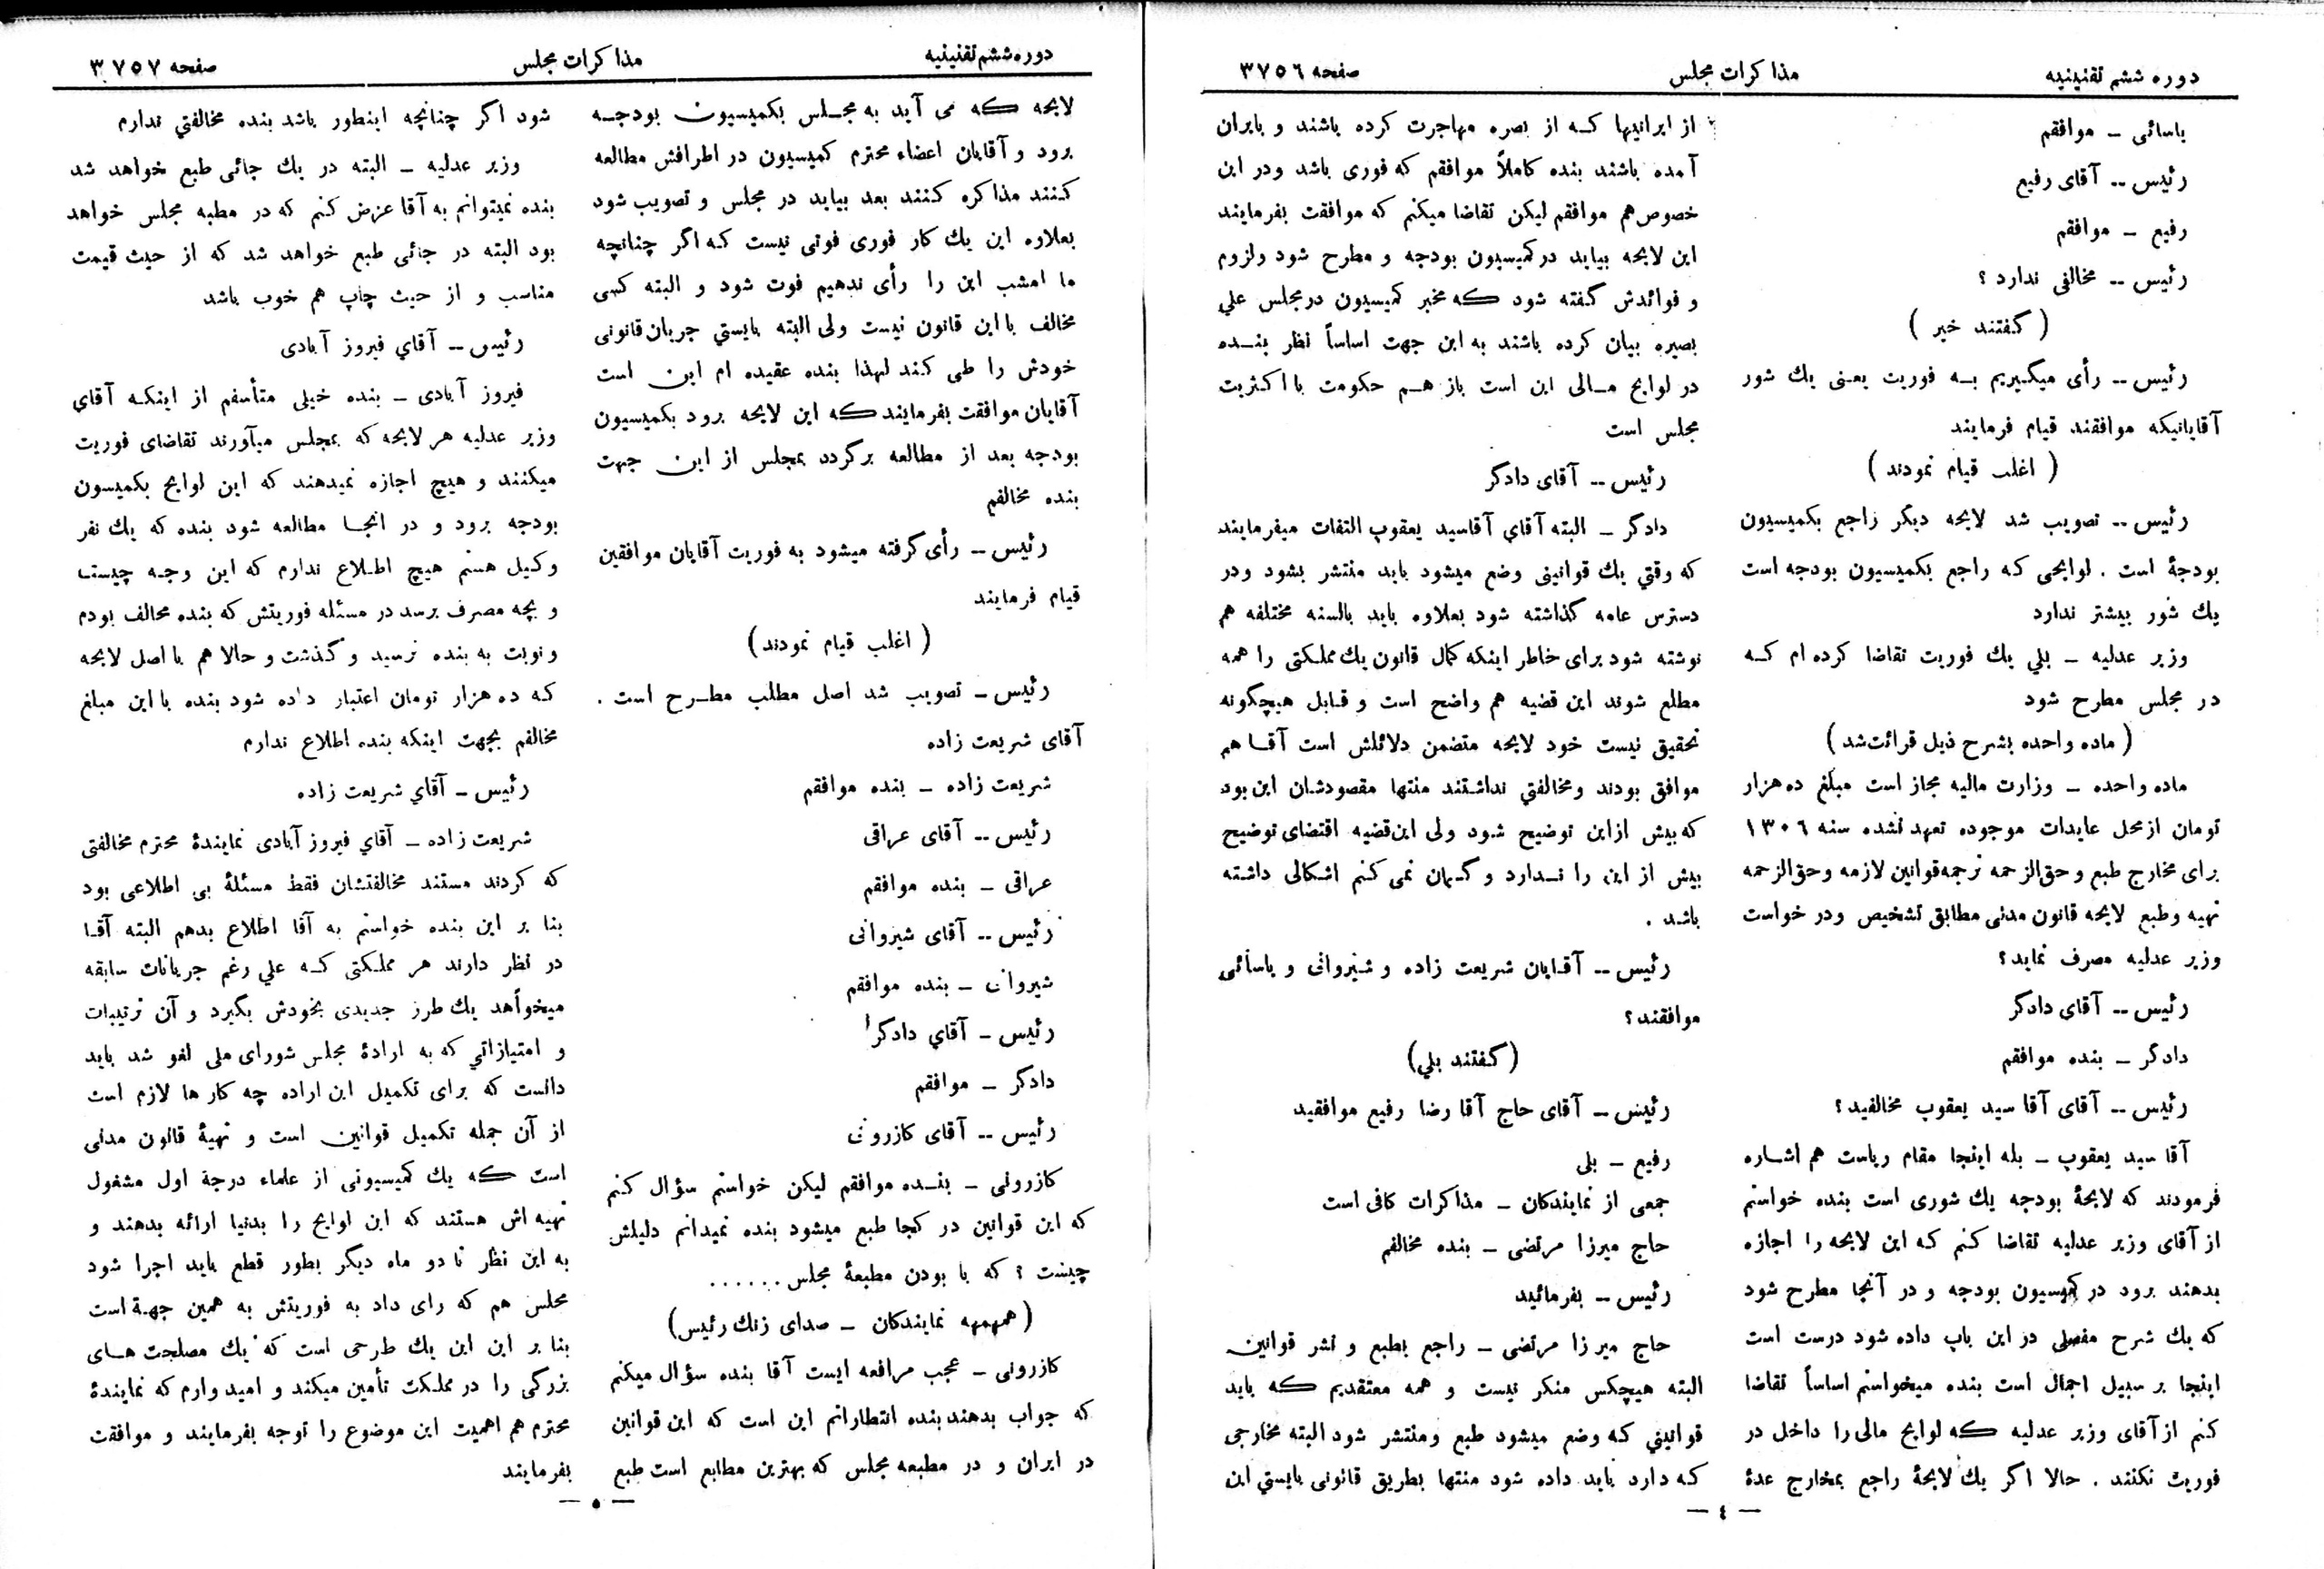 دوره ششم تقنینیه
مذاکرات مجلس
صفحه ۳۷۵۶
یاسائی ـ موافقم
رئیس -- آقای رفیع
رفیع ـ موافقم
رئیس -- مخالفی ندارد ؟
( گفتند خیر )
رئیس -- رأی میگیریم به فوریت یعنی یك شور
آقایانیکه موافقند قیام فرمایند
( اغلب قیام نمودند )
رئیس -- تصویب شد لایحه دیگر راجع بکمیسیون
بودجهٔ است . لوایحی که راجع بکمیسیون بودجه است
یك شور بیشتر ندارد
وزیر عدلیه ـ بلي یك فوریت تقاضا کرده ام که
در مجلس مطرح شود
( ماده واحده بشرح ذیل قرائت شد )
ماده واحده ـ وزارت مالیه مجاز است مبلغ ده هزار
تومان از محل عایدات موجوده تعهد نشده سنه ۱۳۰۶
برای مخارج طبع و حق الزحمه ترجمه قوانین لازمه و حق الزحمه
تهیه و طبع لایحه قانون مدنی مطابق تشخیص و در خواست
وزیر عدلیه مصرف نماید ؟
رئیس -- آقای دادگر
دادگر ـ بنده موافقم
رئیس -- آقای آقا سید یعقوب مخالفید ؟
آقا سید یعقوب ـ بله اینجا مقام ریاست هم اشاره
فرمودند که لایحهٔ بودجه یك شوری است بنده خواستم
از آقای وزیر عدلیه تقاضا کنم که این لایحه را اجازه
بدهند برود در کمیسیون بودجه و در آنجا مطرح شود
که یك شرح مفصلی در این باب داده شود درست است
اینجا بر سبیل اجمال است بنده میخواستم اساساً تقاضا
کنم از آقای وزیر عدلیه که لوایح مالی را داخل در
فوریت نکنند . حالا اگر یك لایحهٔ راجع بمخارج عدهٔ
از ایرانیها که از بصره مهاجرت کرده باشند و بایران
آمده باشند بنده کاملاً موافقم که فوری باشد و در این
خصوص هم موافقم لیکن تقاضا میکنم که موافقت بفرمایند
این لایحه بیاید در کمیسیون بودجه و مطرح شود و لزوم
و فوائدش گفته شود که مخبر کمیسیون در مجلس علي
بصیره بیان کرده باشند به این جهت اساساً نظر بنده
در لوایح مالی این است باز هم حکومت با اکثریت
مجلس است
رئیس -- آقای دادگر
دادگر ـ البته آقاي آقا سید یعقوب التفات میفرمایند
که وقتي یك قوانینی وضع میشود باید منتشر بشود و در
دسترس عامه گذاشته شود بعلاوه باید بالسنه مختلفه هم
نوشته شود برای خاطر اینکه کمال قانون یك مملکتی را همه
مطلع شوند این قضیه هم واضح است و قابل هیچگونه
تحقیق نیست خود لایحه متضمن دلائلش است آقا هم
موافق بودند و مخالفتي نداشتند منتها مقصودشان این بود
که بیش از این توضیح شود ولی این قضیه اقتضای توضیح
بیش از این را ندارد و گمان نمی کنم اشکالی داشته
باشد .
رئیس -- آقایان شریعت زاده و شیروانی و یاسائی
موافقند ؟
( گفتند بلي )
رئیس ـ آقای حاج آقا رضا رفیع موافقید
رفیع ـ بلی
جمعی از نمایندگان ـ مذاکرات کافی است
حاج میرزا مرتضی ـ بنده مخالفم
رئیس ـ بفرمائید
حاج میرزا مرتضی ـ راجع بطبع و نشر قوانین
البته هیچکس منکر نیست و همه معتقدیم که باید
قوانیني که وضع میشود طبع و منتشر شود البته مخارجی
که دارد باید داده شود منتها بطریق قانونی بایستي این
— ٤ —
دوره ششم تقنینیه
مذاکرات مجلس
صفحه ۳۷۵۷
لایحه که می آید به مجلس بکمیسیون بودجه
برود و آقایان اعضاء محترم کمیسیون در اطرافش مطالعه
کنند مذاکره کنند بعد بیاید در مجلس و تصویب شود
بعلاوه این یك کار فوری فوتی نیست که اگر چنانچه
ما امشب این را رأی ندهیم فوت شود و البته کسی
مخالف با این قانون نیست ولی البته بایستي جریان قانونی
خودش را طی کند لهذا بنده عقیده ام این است
آقایان موافقت بفرمایند که این لایحه برود بکمیسیون
بودجه بعد از مطالعه برگردد بمجلس از این جهت
بنده مخالفم
رئیس ـ رأی گرفته میشود به فوریت آقایان موافقین
قیام فرمایند
( اغلب قیام نمودند )
رئیس ـ تصویب شد اصل مطلب مطرح است .
آقای شریعت زاده
شریعت زاده ـ بنده موافقم
رئیس -- آقای عراقی
عراقی ـ بنده موافقم
رئیس -- آقای شیروانی
شیروانی ـ بنده موافقم
رئیس ـ آقاي دادگر
دادگر ـ موافقم
رئیس -- آقای کازرونی
کازرونی ـ بنده موافقم لیکن خواستم سؤال کنم
که این قوانین در کجا طبع میشود بنده نمیدانم دلیلش
چیست ؟ که با بودن مطبعهٔ مجلس . . . . . .
( همهمه نمایندکان ـ صدای زنك رئیس )
کازرونی ـ عجب مرافعه ایست آقا بنده سؤال میکنم
که جواب بدهند بنده انتظاراتم این است که این قوانین
در ایران و در مطبعه مجلس که بهترین مطابع است طبع
شود اگر چنانچه اینطور باشد بنده مخالفتي ندارم
وزیر عدلیه ـ البته در یك جائی طبع خواهد شد
بنده نمیتوانم به آقا عرض کنم که در مطبه مجلس خواهد
بود البته در جائی طبع خواهد شد که از حیث قیمت
مناسب و از حیث چاپ هم خوب باشد
رئیس ـ آقاي فیروز آبادی
فیروز آبادی ـ بنده خیلی متأسفم از اینکه آقاي
وزیر عدلیه هر لایحه که بمجلس میآورند تقاضای فوریت
میکنند و هیچ اجازه نمیدهند که این لوایح بکمیسون
بودجه برود و در انجا مطالعه شود بنده که یك نفر
وکیل هستم هیچ اطلاع ندارم که این وجه چیست
و بچه مصرف برسد در مسئله فوریتش که بنده مخالف بودم
و نوبت به بنده نرسید و گذشت و حالا هم با اصل لایحه
که ده هزار تومان اعتبار داده شود بنده با این مبلغ
مخالفم بجهت اینکه بنده اطلاع ندارم
رئیس ـ آقاي شریعت زاده
شریعت زاده ـ آقاي فیروز آبادی نمایندهٔ محترم مخالفتی
که کردند مستند مخالفتشان فقط مسئلهٔ بی اطلاعی بود
بنا بر این بنده خواستم به آقا اطلاع بدهم البته آقا
در نظر دارند هر مملکتی که علي رغم جریانات سابقه
میخواهد یك طرز جدیدی بخودش بگیرد و آن ترتیبات
و امتیازاتي که به ارادهٔ مجلس شورای ملی لغو شد باید
دانست که برای تکمیل این اراده چه کار ها لازم است
از آن جمله تکمیل قوانین است و تهیهٔ قانون مدنی
است که یك کمیسیونی از علماء درجهٔ اول مشغول
تهیه اش هستند که این لوایح را بدنیا ارائه بدهند و
به این نظر تا دو ماه دیگر بطور قطع باید اجرا شود
مجلس هم که رای داد به فوریتش به همین جهة است
بنا بر این این یك طرحی است که یك مصلحت های
بزرگی را در مملکت تأمین میکند و امیدوارم که نمایندهٔ
محترم هم اهمیت این موضوع را توجه بفرمایند و موافقت
بفرمایند
— ٥ —